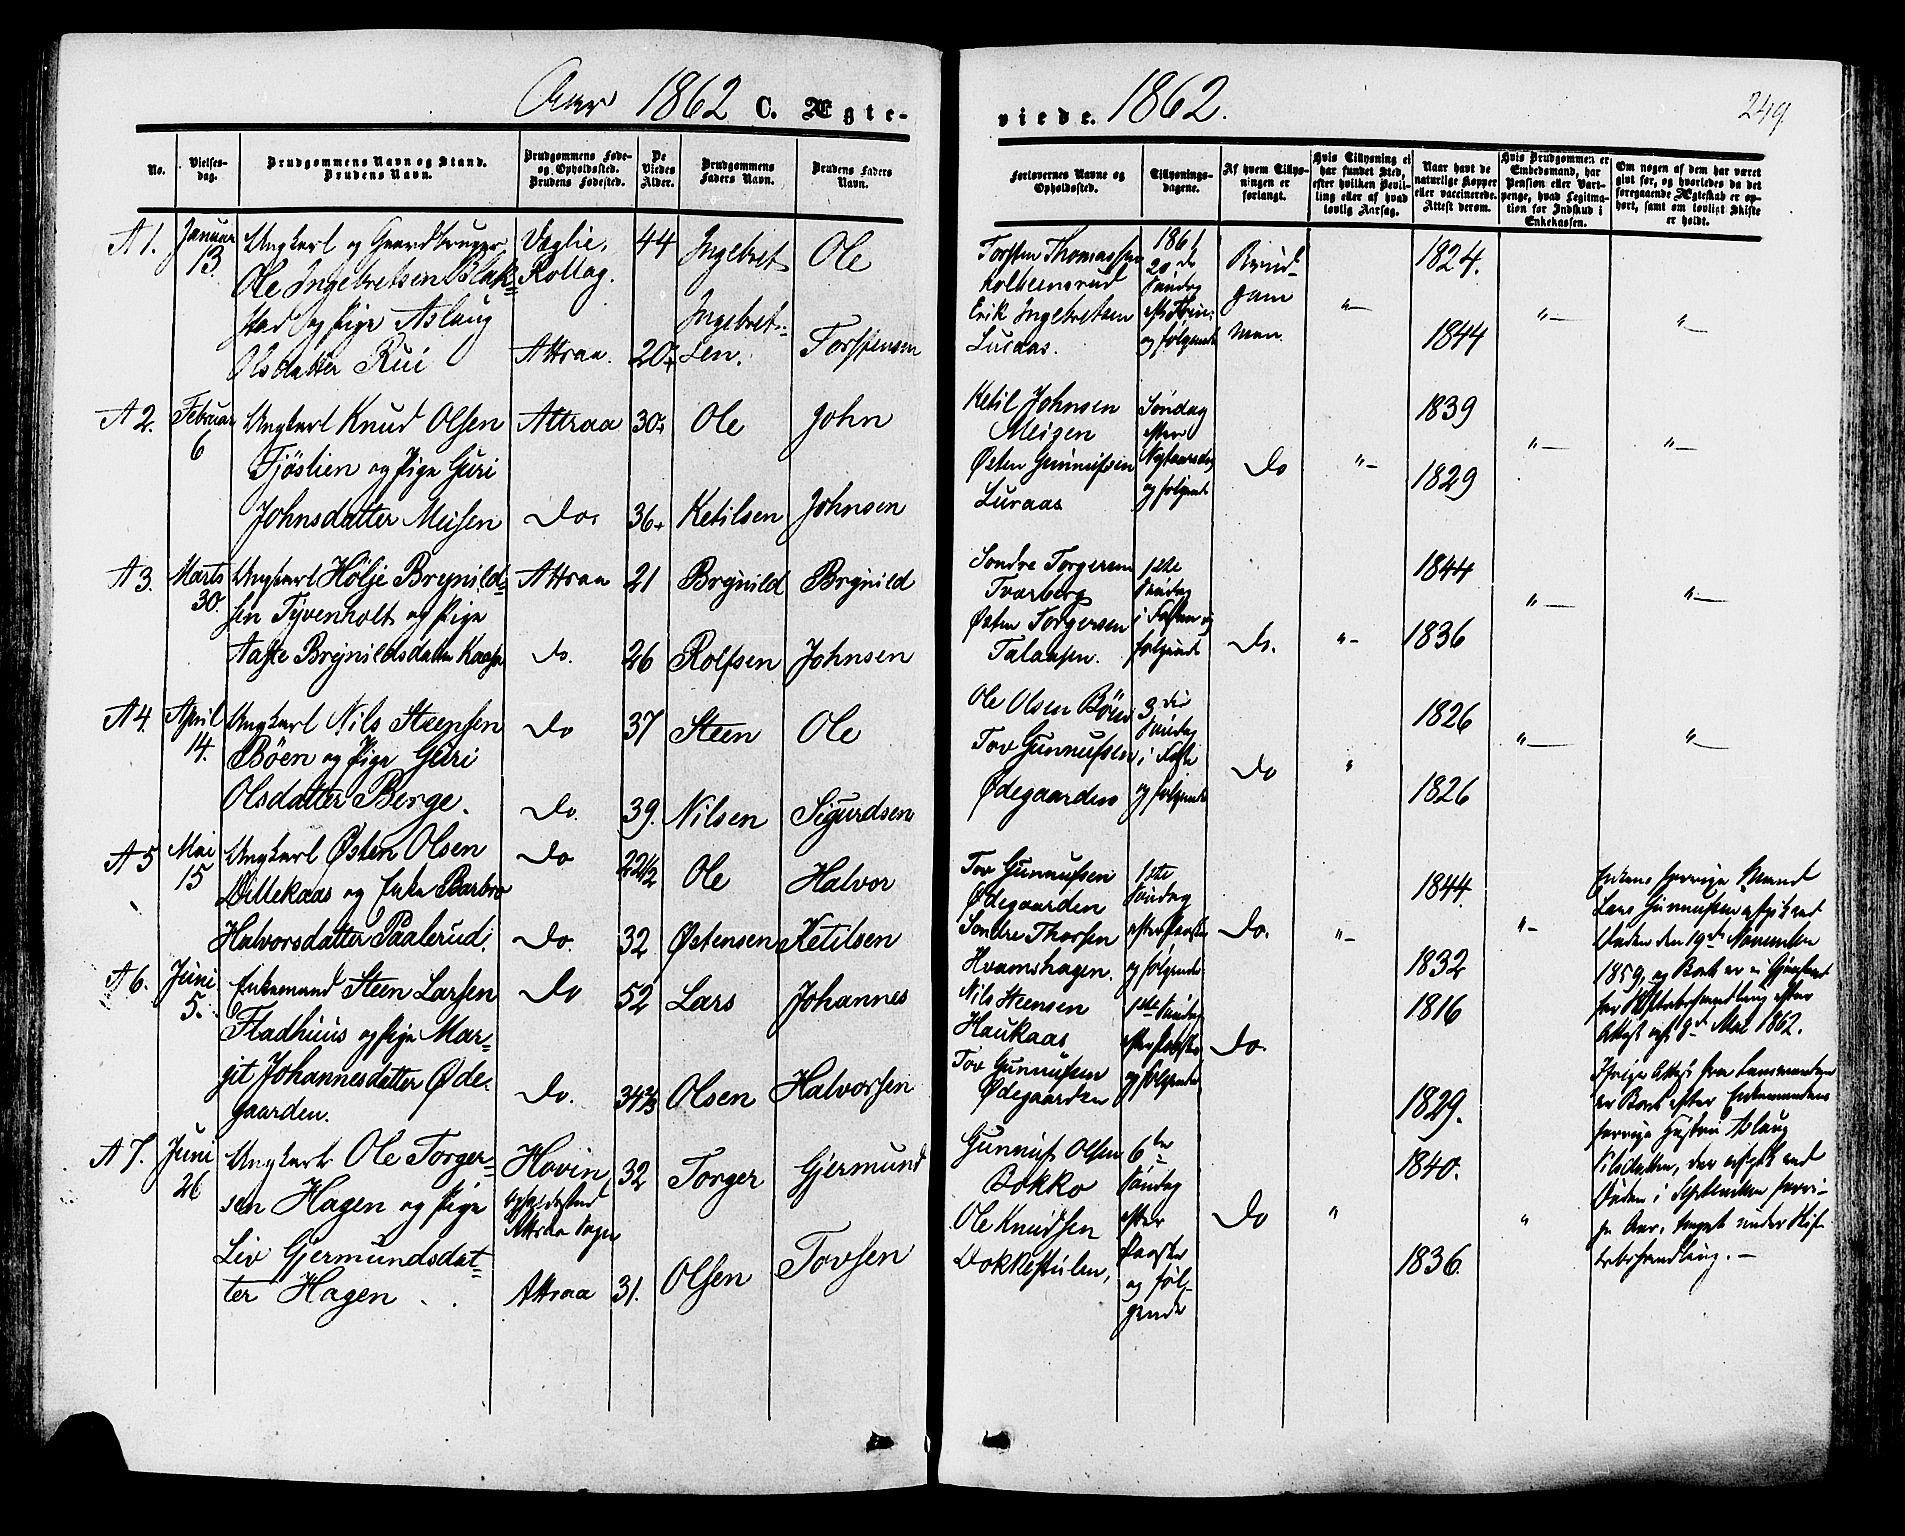 Aar 1862 C. Ægte-
viede. 1862.
249
No.
Vielses-
dag.
Brudgommens Navn og Stand.
Brudens Navn.
Brudgommens Føde-
og Opholdssted.
Brudens Fødested.
De
Viedes
Alder.
Brudgommens
Faders Navn.
Brudens Faders
Navn.
Forlovernes Navne og
Opholdssted.
Tillysnings-
dagene.
Af hvem Tillys-
ningen er
forlangt.
Hvis Tillysning ei
har fundet Sted,
efter hvilken Bevil-
ling eller af hvad
lovlig Aarsag.
Naar havt de
naturlige Kopper
eller vaccinerede.
Attest derom.
Hvis Brudgommen er
Embedsmand, har
Pension eller Vart-
penge, hvad Legitima-
tion for Indskud i
Enkekassen.
Om nogen af dem har været
givt før, og hvorledes da det
foregaaende Ægteskab er op-
hørt, samt om lovligt Skifte
er holdt.
A 1.
Januar
13.
Ungkarl og Gaardbruger
Ole Ingebretsen Blak-
stad og Pige Aslaug
Olsdatter Rui
Veglie,
Rollag.
Attraa.
44
20
Ingebret
Ingebret-
sen.
Ole
Torstensen
Torsten Thomassen
Kolkensrud
Erik Ingebretsen
Luraas.
1861
20de
Søndag
eft. Trin.
og følgende
Brud-
gom
men
"
1824.
1844
"
"
A 2.
Februar
6
Ungkarl Knud Olsen
Tjöslien og Pige Guri
Johnsdatter Meisen
Attraa
Do.
30
36
Ole
Ketilsen
John
Johnsen
Ketil Johnsen
Meizen
Østen Gunnufsen
Luraas
Søndag
efter
Nytaarsdag
og følgende
Do
"
1839
1829
"
"
A 3.
Marts
30.
Ungkarl Hölje Brynild-
sen Tyvenholt og Pige
Aaste Brynildsdatter Kaasa
Attraa
Do.
21
26
Brynild
Rolfsen
Brynild
Johnsen
Sondre Torgersen
Tvarberg
Østen Torgersen
Talaasen.
1ste
Søndag
i Fasten og
følgende
Do.
"
1844
1836
"
"
A 4.
April
14.
Ungkarl Nils Steensen
Böen og Pige Guri
Olsdatter Berge.
Do
Do.
37
39.
Steen
Nilsen
Ole
Sigurdsen
Ole Olsen Böen
Tov Gunnufsen
Ødegaarden
3die
Søndag
i Faste
og følgende
Do
"
1826
1826
"
"
A 5
Mai
15
Ungkarl Østen Olsen
Dillekaas og Enke Barbro
Halvorsdatter Paalerud.
Do
Do.
22 1/2
32
Ole
Østensen
Halvor
Ketilsen
Tov Gunnufsen
Ødegaarden
Sondre Thorsen
Hvamshagen.
1ste
Søndag
efter Paaske
og følgende
Do.
"
1844.
1832
"
Enkens forrige Mand
Lars Gunnufsen afgik ved
Døden den 19de November
1859, og Boet er i Gjæld
for Skiftebehandling efter
Attest af 9de Mai 1862.
A 6.
Juni
5.
Enkemand Steen Larsen
Fladhuus og Pige Mar-
git Johannesdatter Øde-
gaarden.
Do
Do.
52
34 2/3
Lars
Olsen
Johannes
Halvorsen
Nils Steensen
Haukaas
Tov Gunnufsen
Ødegaarden
1ste Søndag
efter Paaske
og følgende
Do.
1816
1829.
Ifølge Attest fra Lensmanden
er Boet efter Enkemandens
forrige Hustru Aslaug
Nilsdatter, der afgik ved
Døden i September forri-
ge Aar, taget under Skif-
tebehandling.
A 7.
Juni
26
Ungkarl Ole Torger-
sen Hagen og Pige
Liv Gjermundsdat-
ter Hagen
Hovin,
opholdssted
Attraa Sogn
Attraa
32
31.
Torger
Olsen
Gjermund
Tovsen
Gunnuf Olsen
Bokko
Ole Knudsen
Dokkestulen,
6te
Søndag
efter
Paaske
og føl-
gende
Do
"
1840.
1836.
"